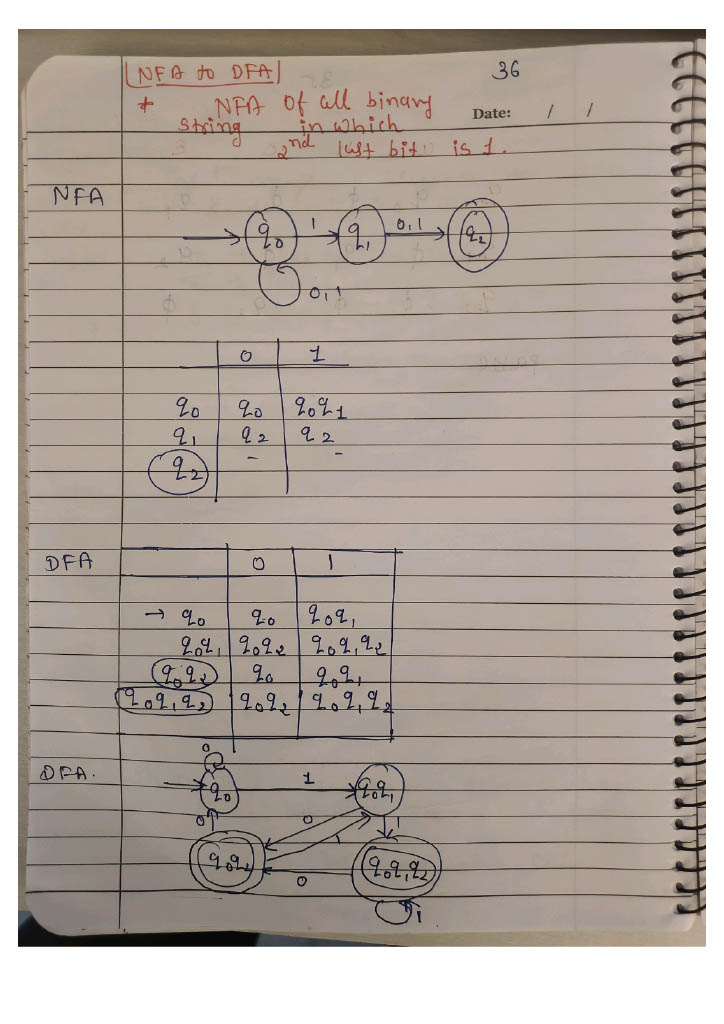 NFA to DFA
36
* NFA of all binary
string in which
Date: / /
2nd last bit is 1.
NFA
q0 1 q1 0,1 q2
0,1
0 1
q0 q0 q0q1
q1 q2 q2
q2 - -
DFA
0 1
→ q0 q0 q0q1
q0q1 q0q2 q0q1q2
q0q2 q0 q0q1
q0q1q2 q0q2 q0q1q2
DFA.
0
q0 1 q0q1
0 0 1 1
q0q2 0 q0q1q2
1